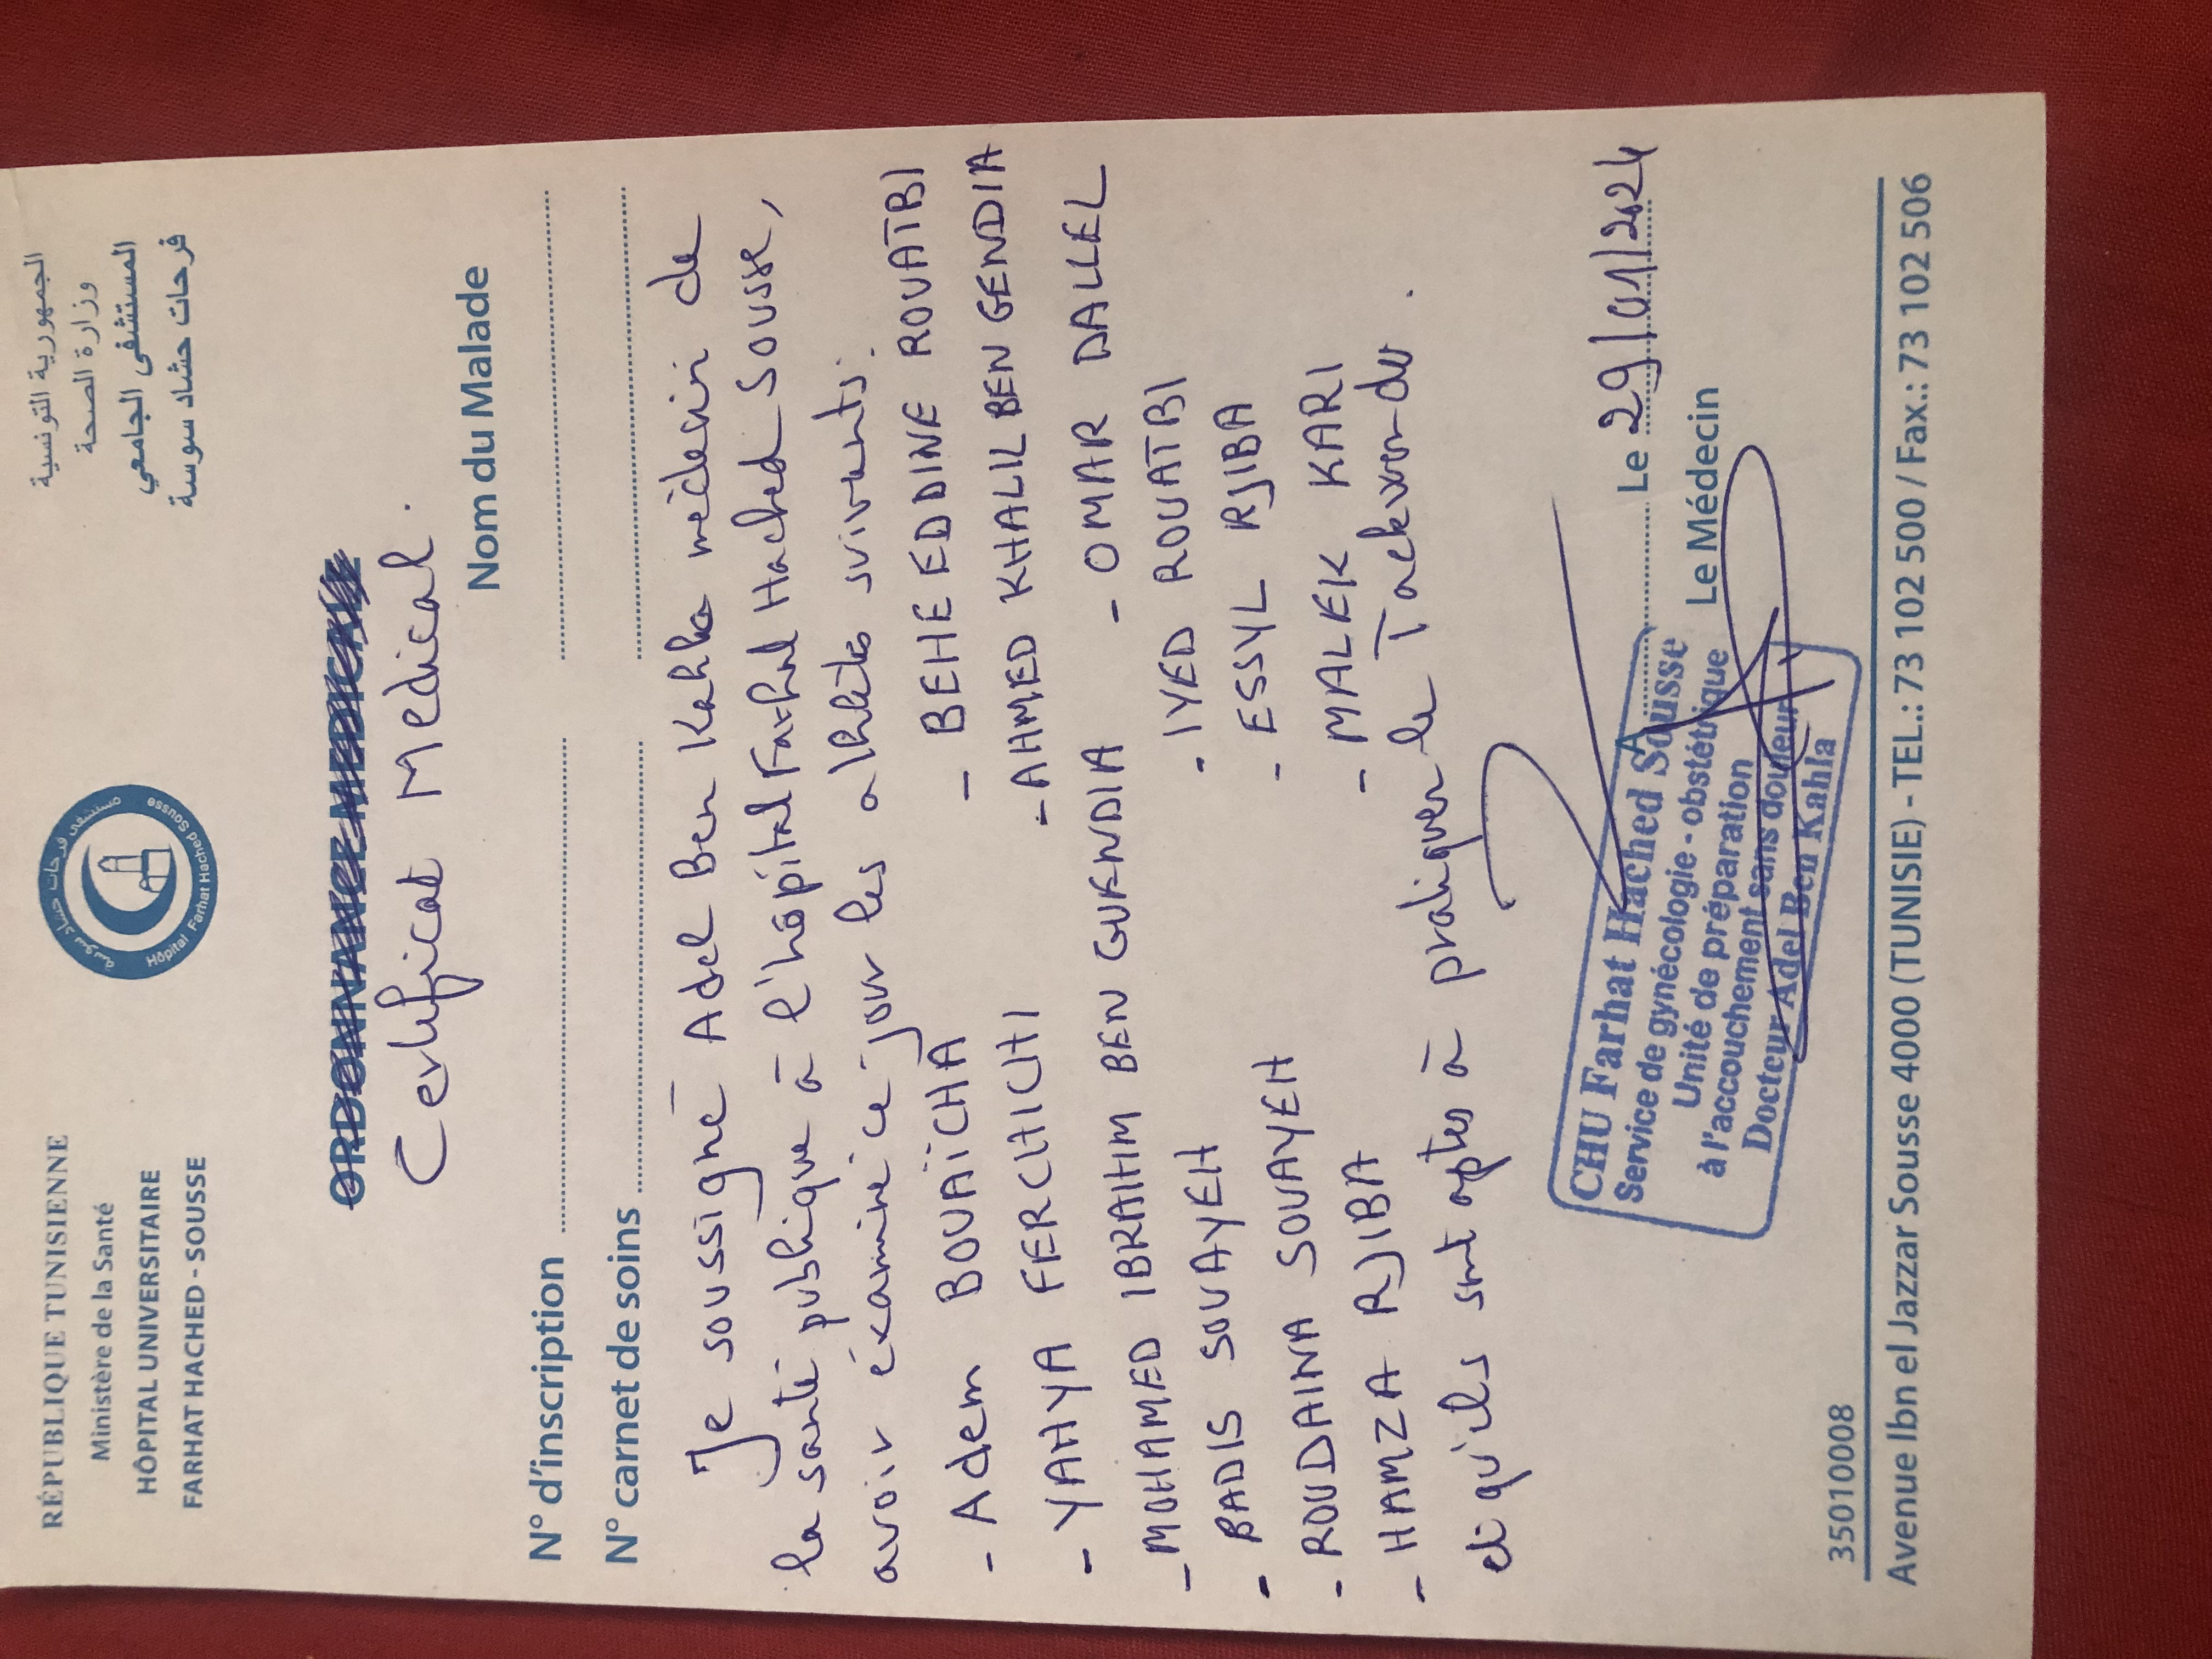 RÉPUBLIQUE TUNISIENNE
Ministère de la Santé
HÔPITAL UNIVERSITAIRE
FARHAT HACHED - SOUSSE
مستشفى فرحات حشاد سوسة
Hôpital Farhat Hached Sousse
الجمهورية التونسية
وزارة الصحة
المستشفى الجامعي
فرحات حشاد سوسة
ORDONNANCE MEDICALE
Certificat Medical.
Nom du Malade
N° d'inscription
N° carnet de soins
Je soussigné Adel Ben Kahla médecin de
la santé publique à l'hôpital Farhat Hached Sousse,
avoir éxaminé ce jour les athlètes suivants:
- Adem BOUAÏCHA - BEHE EDDINE ROUATBI
- YAHYA FERCHICHI - AHMED KHALIL BEN GENDIA
- MOHAMED IBRAHIM BEN GUENDIA - OMAR DALLEL
- BADIS SOUAYEH - IYED ROUATBI
- ROUDAINA SOUAYEH - ESSYL RJIBA
- HAMZA RJIBA - MALEK KARI
et qu'ils sont aptes à pratiquer le Taekwondo.
A Le 29/01/2024
Le Médecin
CHU Farhat Hached Sousse
Service de gynécologie - obstétrique
Unité de préparation
à l'accouchement sans douleur
Docteur Adel Ben Kahla
35010008
Avenue Ibn el Jazzar Sousse 4000 (TUNISIE) - TEL.: 73 102 500 / Fax.: 73 102 506